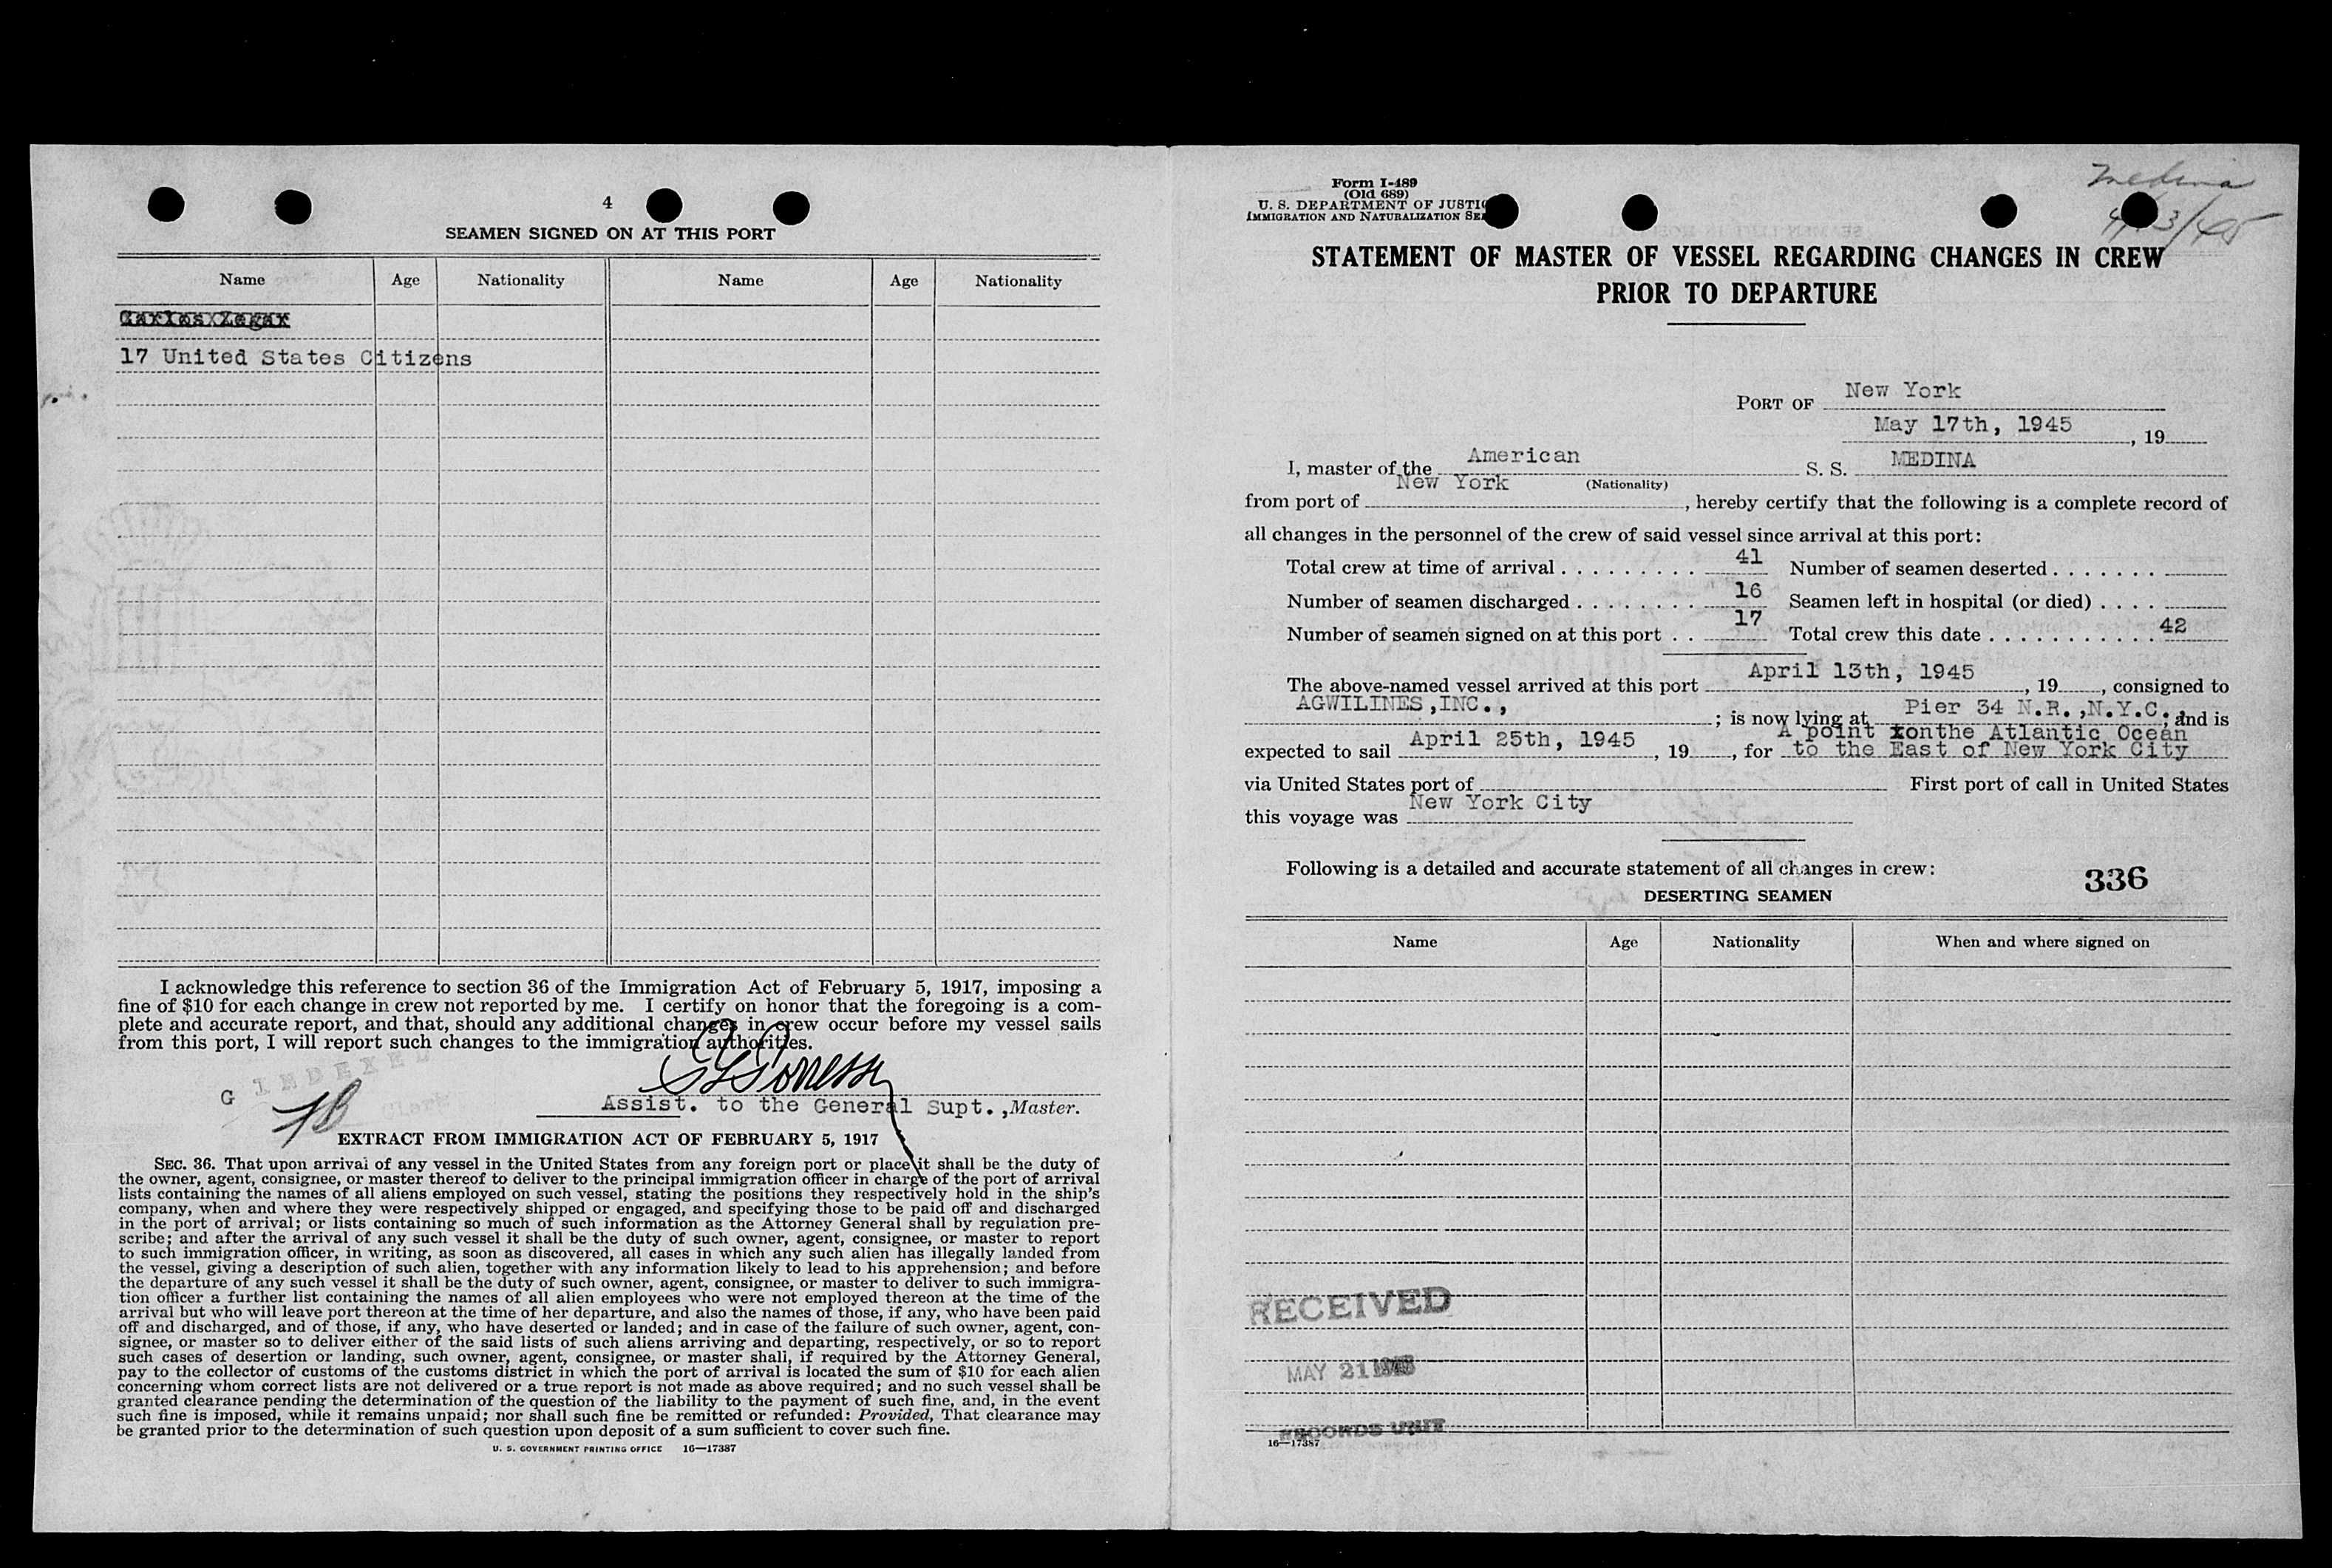 4
SEAMEN SIGNED ON AT THIS PORT
Name Age Nationality Name Age Nationality
17 United States Citizens
I acknowledge this reference to section 36 of the Immigration Act of February 5, 1917, imposing a
fine of $10 for each change in crew not reported by me. I certify on honor that the foregoing is a com-
plete and accurate report, and that, should any additional changes in crew occur before my vessel sails
from this port, I will report such changes to the immigration authorities.
INDEXED
G
Clerk
Assist. to the General Supt., Master.
EXTRACT FROM IMMIGRATION ACT OF FEBRUARY 5, 1917
SEC. 36. That upon arrival of any vessel in the United States from any foreign port or place it shall be the duty of
the owner, agent, consignee, or master thereof to deliver to the principal immigration officer in charge of the port of arrival
lists containing the names of all aliens employed on such vessel, stating the positions they respectively hold in the ship's
company, when and where they were respectively shipped or engaged, and specifying those to be paid off and discharged
in the port of arrival; or lists containing so much of such information as the Attorney General shall by regulation pre-
scribe; and after the arrival of any such vessel it shall be the duty of such owner, agent, consignee, or master to report
to such immigration officer, in writing, as soon as discovered, all cases in which any such alien has illegally landed from
the vessel, giving a description of such alien, together with any information likely to lead to his apprehension; and before
the departure of any such vessel it shall be the duty of such owner, agent, consignee, or master to deliver to such immigra-
tion officer a further list containing the names of all alien employees who were not employed thereon at the time of the
arrival but who will leave port thereon at the time of her departure, and also the names of those, if any, who have been paid
off and discharged, and of those, if any, who have deserted or landed; and in case of the failure of such owner, agent, con-
signee, or master so to deliver either of the said lists of such aliens arriving and departing, respectively, or so to report
such cases of desertion or landing, such owner, agent, consignee, or master shall, if required by the Attorney General,
pay to the collector of customs of the customs district in which the port of arrival is located the sum of $10 for each alien
concerning whom correct lists are not delivered or a true report is not made as above required; and no such vessel shall be
granted clearance pending the determination of the question of the liability to the payment of such fine, and, in the event
such fine is imposed, while it remains unpaid; nor shall such fine be remitted or refunded: Provided, That clearance may
be granted prior to the determination of such question upon deposit of a sum sufficient to cover such fine.
U. S. GOVERNMENT PRINTING OFFICE 16—17387
Form I-489
(Old 689)
U. S. DEPARTMENT OF JUSTIC
IMMIGRATION AND NATURALIZATION SE
Medina
STATEMENT OF MASTER OF VESSEL REGARDING CHANGES IN CREW
PRIOR TO DEPARTURE
PORT OF New York
May 17th, 1945, 19
I, master of the American S. S. MEDINA
(Nationality)
from port of New York, hereby certify that the following is a complete record of
all changes in the personnel of the crew of said vessel since arrival at this port:
Total crew at time of arrival 41 Number of seamen deserted
Number of seamen discharged 16 Seamen left in hospital (or died)
Number of seamen signed on at this port 17 Total crew this date 42
The above-named vessel arrived at this port April 13th, 1945, 19, consigned to
AGWILINES,INC., ; is now lying at Pier 34 N.R.,N.Y.C., and is
A point on the Atlantic Ocean
expected to sail April 25th, 1945, 19, for to the East of New York City
via United States port of First port of call in United States
this voyage was New York City
Following is a detailed and accurate statement of all changes in crew:
336
DESERTING SEAMEN
Name Age Nationality When and where signed on
RECEIVED
MAY 21 1945
RECORDS UNIT
16—17387